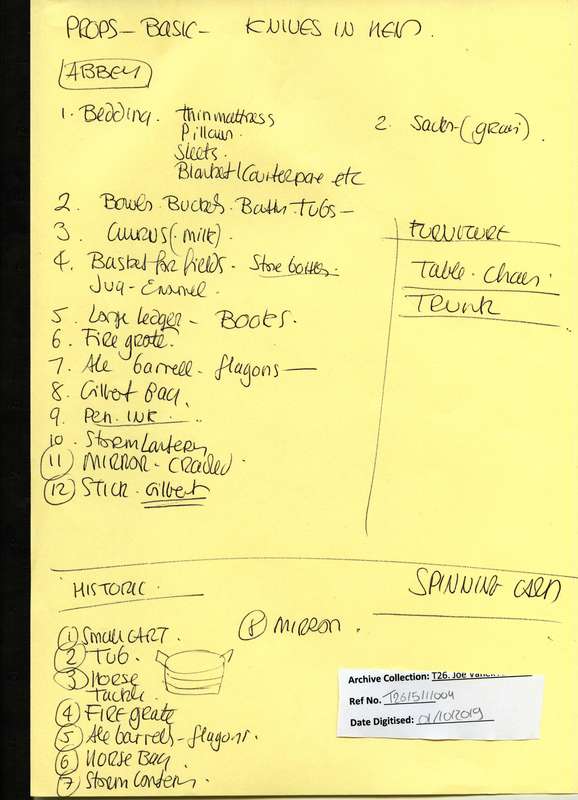 PROPS - BASIC - KNIVES IN HEN.
ABBEY
1. Bedding. thin mattress
Pillows.
Sheets.
Blanket / Counterpane etc
2. Sacks - (grain).
2. Bowls. Buckets. Bath-Tubs -
3. CHURNS (milk).
4. Basket for fields. Stone bottles.
Jug - Enamel.
5. Large ledger - BOOKS.
6. Fire grate.
7. Ale barrell - flagons -
8. Gilbert Bag.
9. Pen. INK.
10. Storm Lantern
11 MIRROR - Cracked.
12 STICK. Gilbert
FURNITURE
Table. Chair.
TRUNK
HISTORIC.
SPINNING
1 SMALL CART.
2 TUB.
3 HORSE
Tackle.
4 FIRE grate
5 Ale barrels - flagons.
6 HORSE Bag
7 Storm Lantern.
8 MIRROR.
Archive Collection: T26. Joe
Ref No. T26/5/11/004
Date Digitised: 01/10/2019